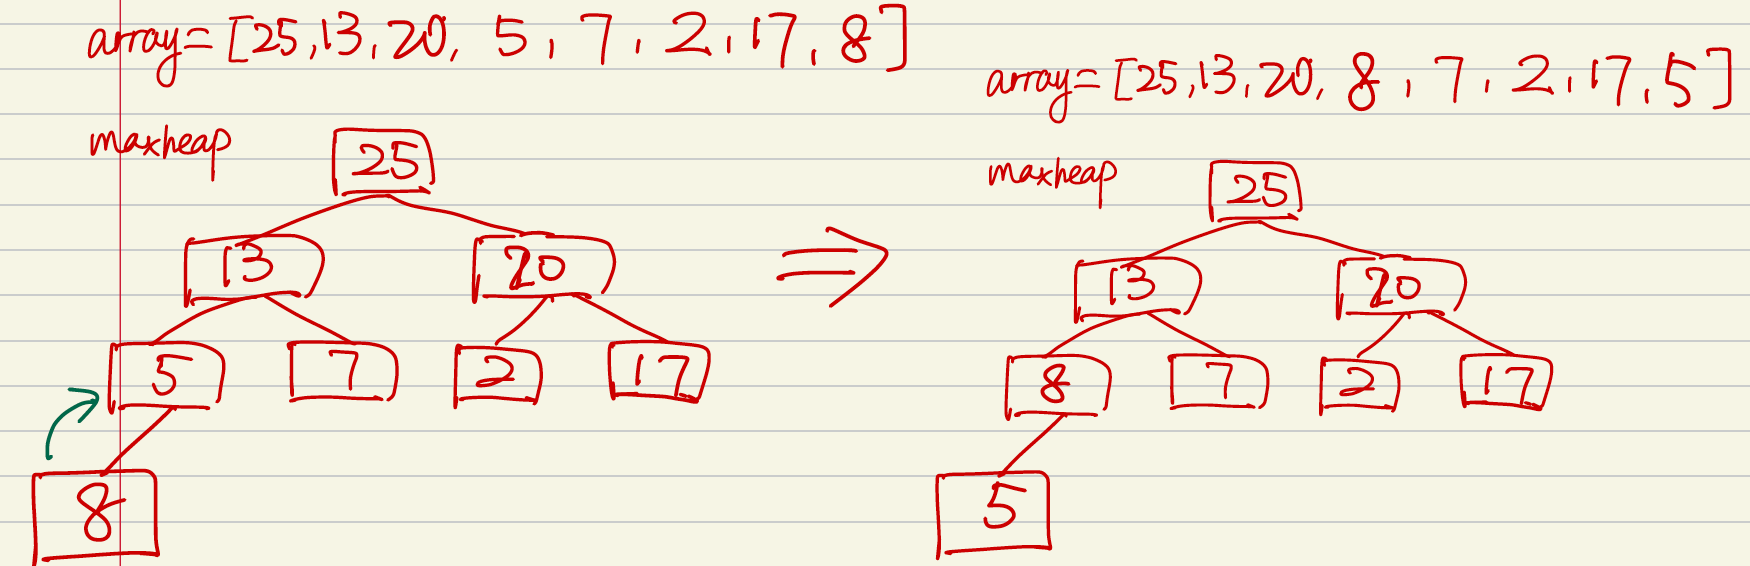 array=[25,13,20, 5, 7, 2, 17, 8]
maxheap
25
13 20
5 7 2 17
8
array=[25,13,20, 8, 7, 2, 17, 5]
maxheap
25
13 20
8 7 2 17
5